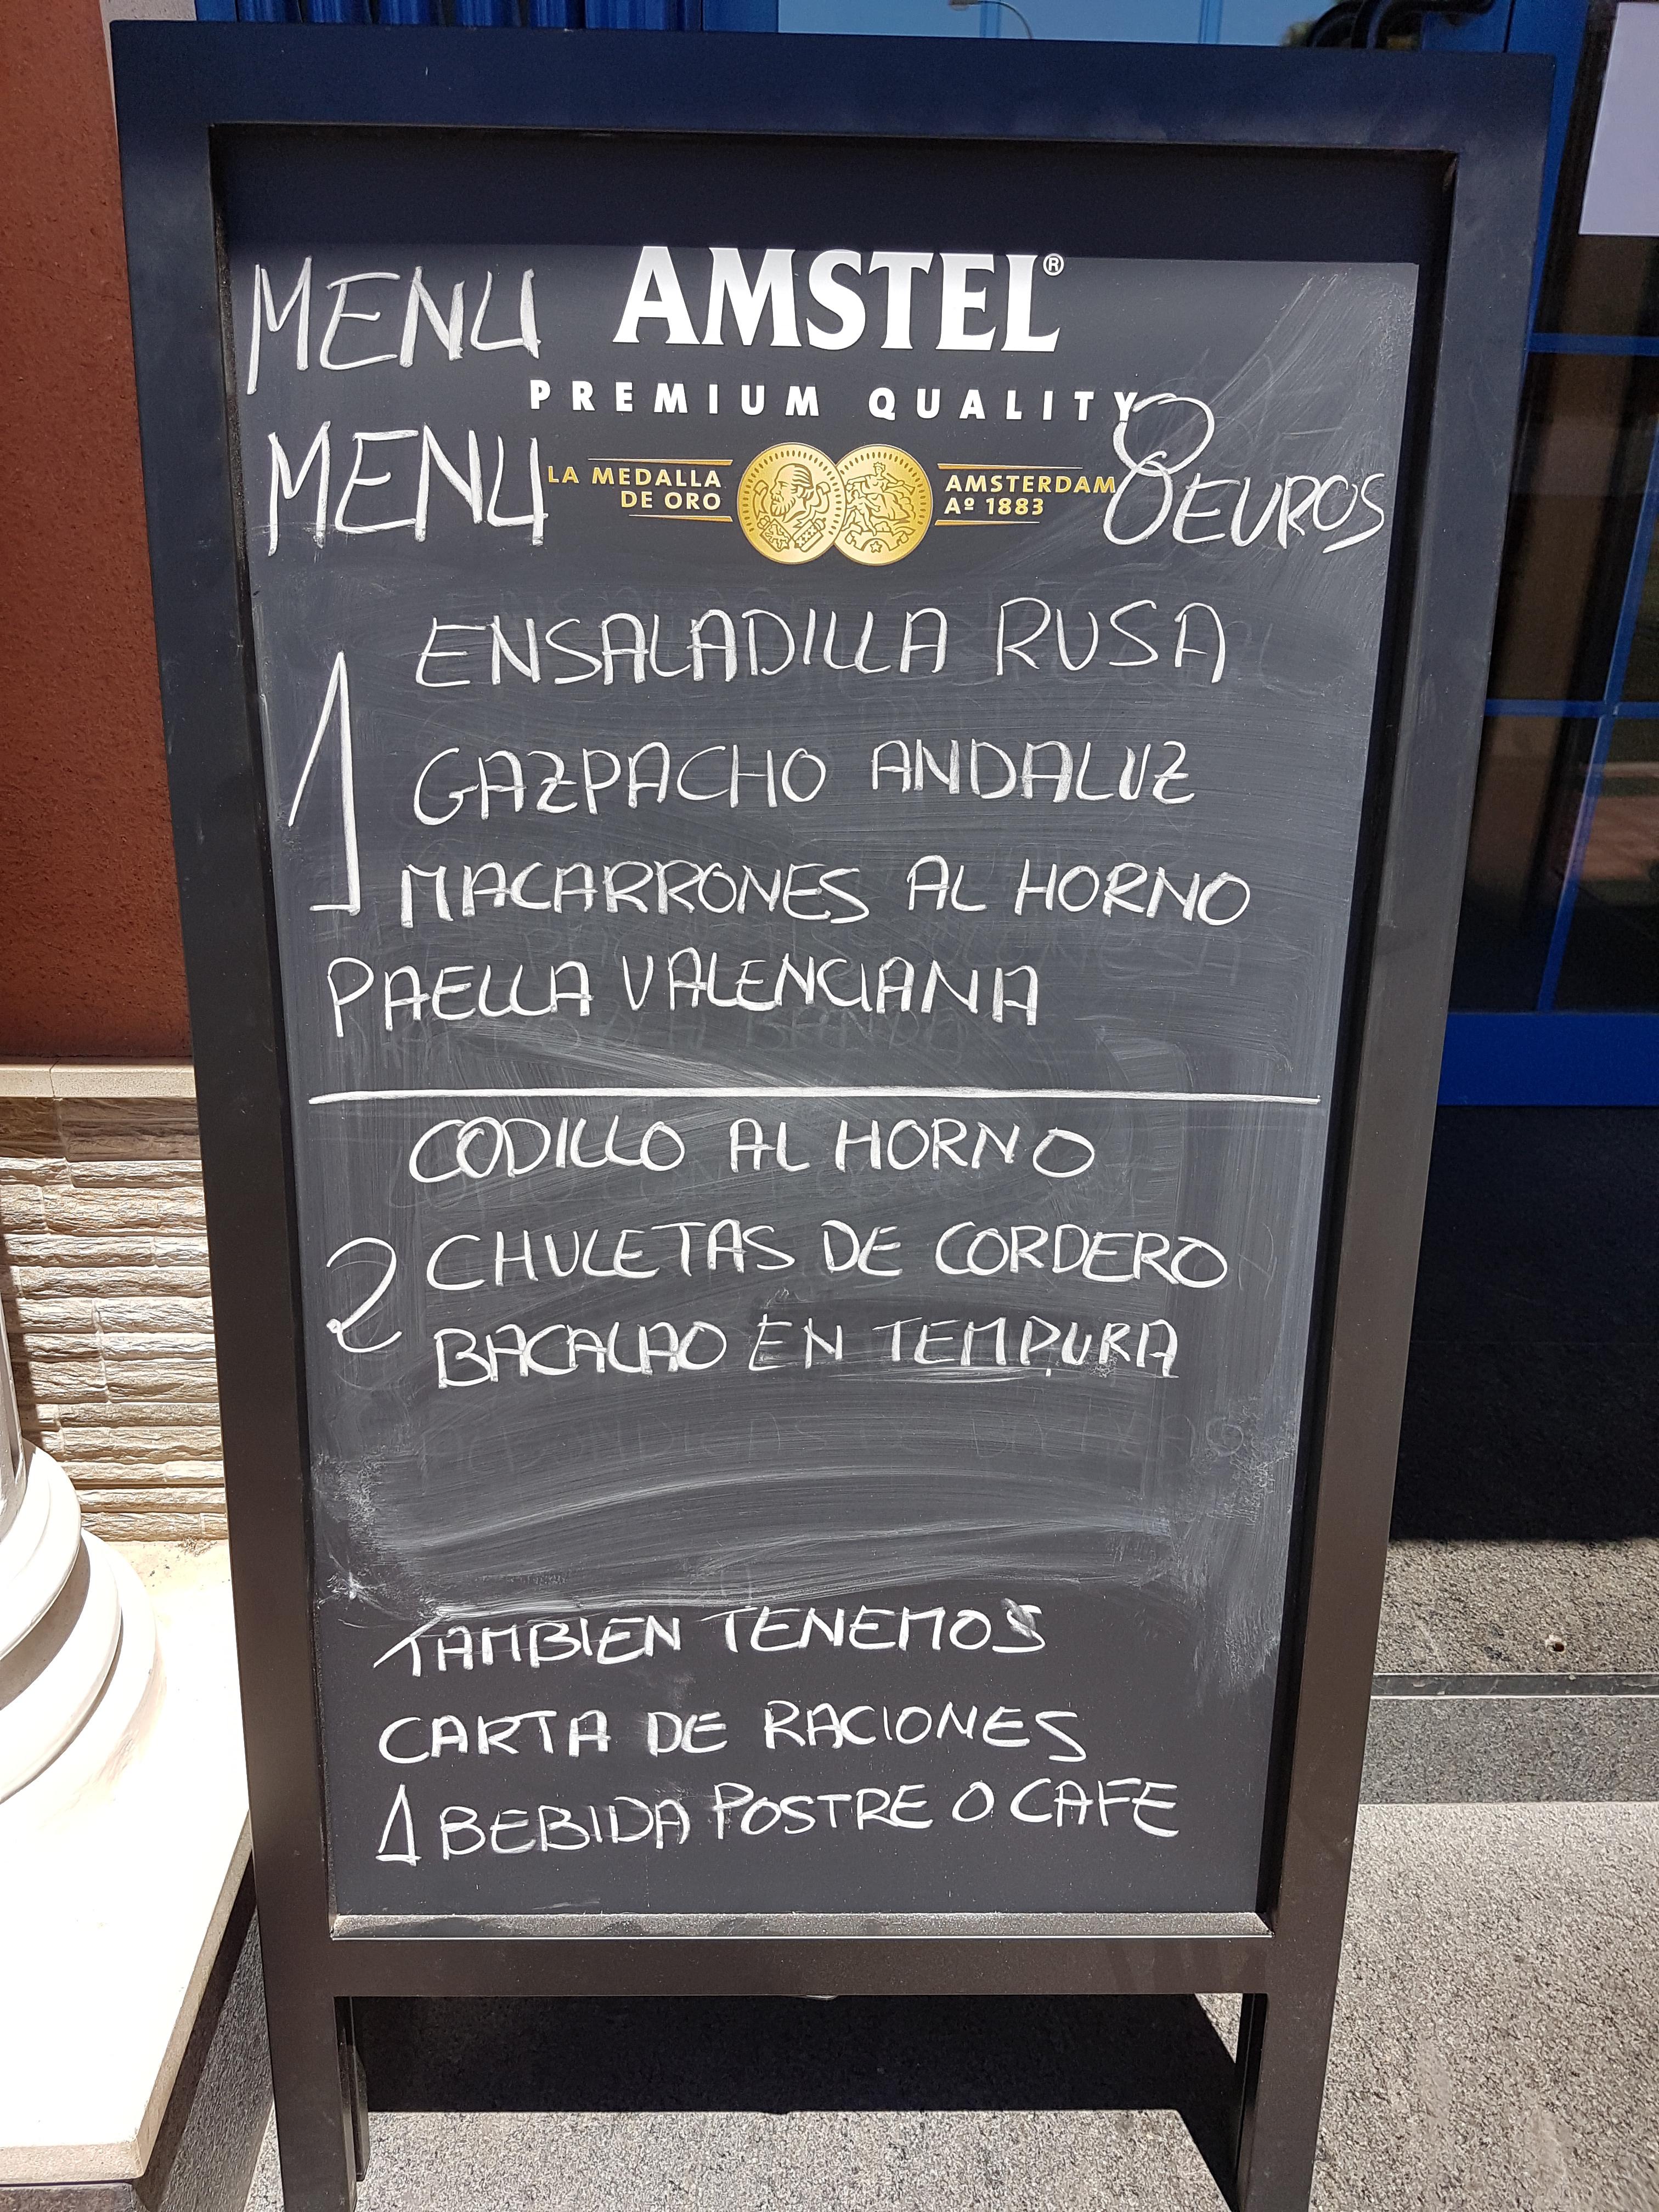 MENU AMSTEL®
PREMIUM QUALITY
MENU LA MEDALLA DE ORO AMSTERDAM Aº 1883 8 EUROS
1 ENSALADILLA RUSA
GAZPACHO ANDALUZ
MACARRONES AL HORNO
PAELLA VALENCIANA
CODILLO AL HORNO
2 CHULETAS DE CORDERO
BACALAO EN TEMPURA
TAMBIEN TENEMOS
CARTA DE RACIONES
1 BEBIDA POSTRE O CAFE